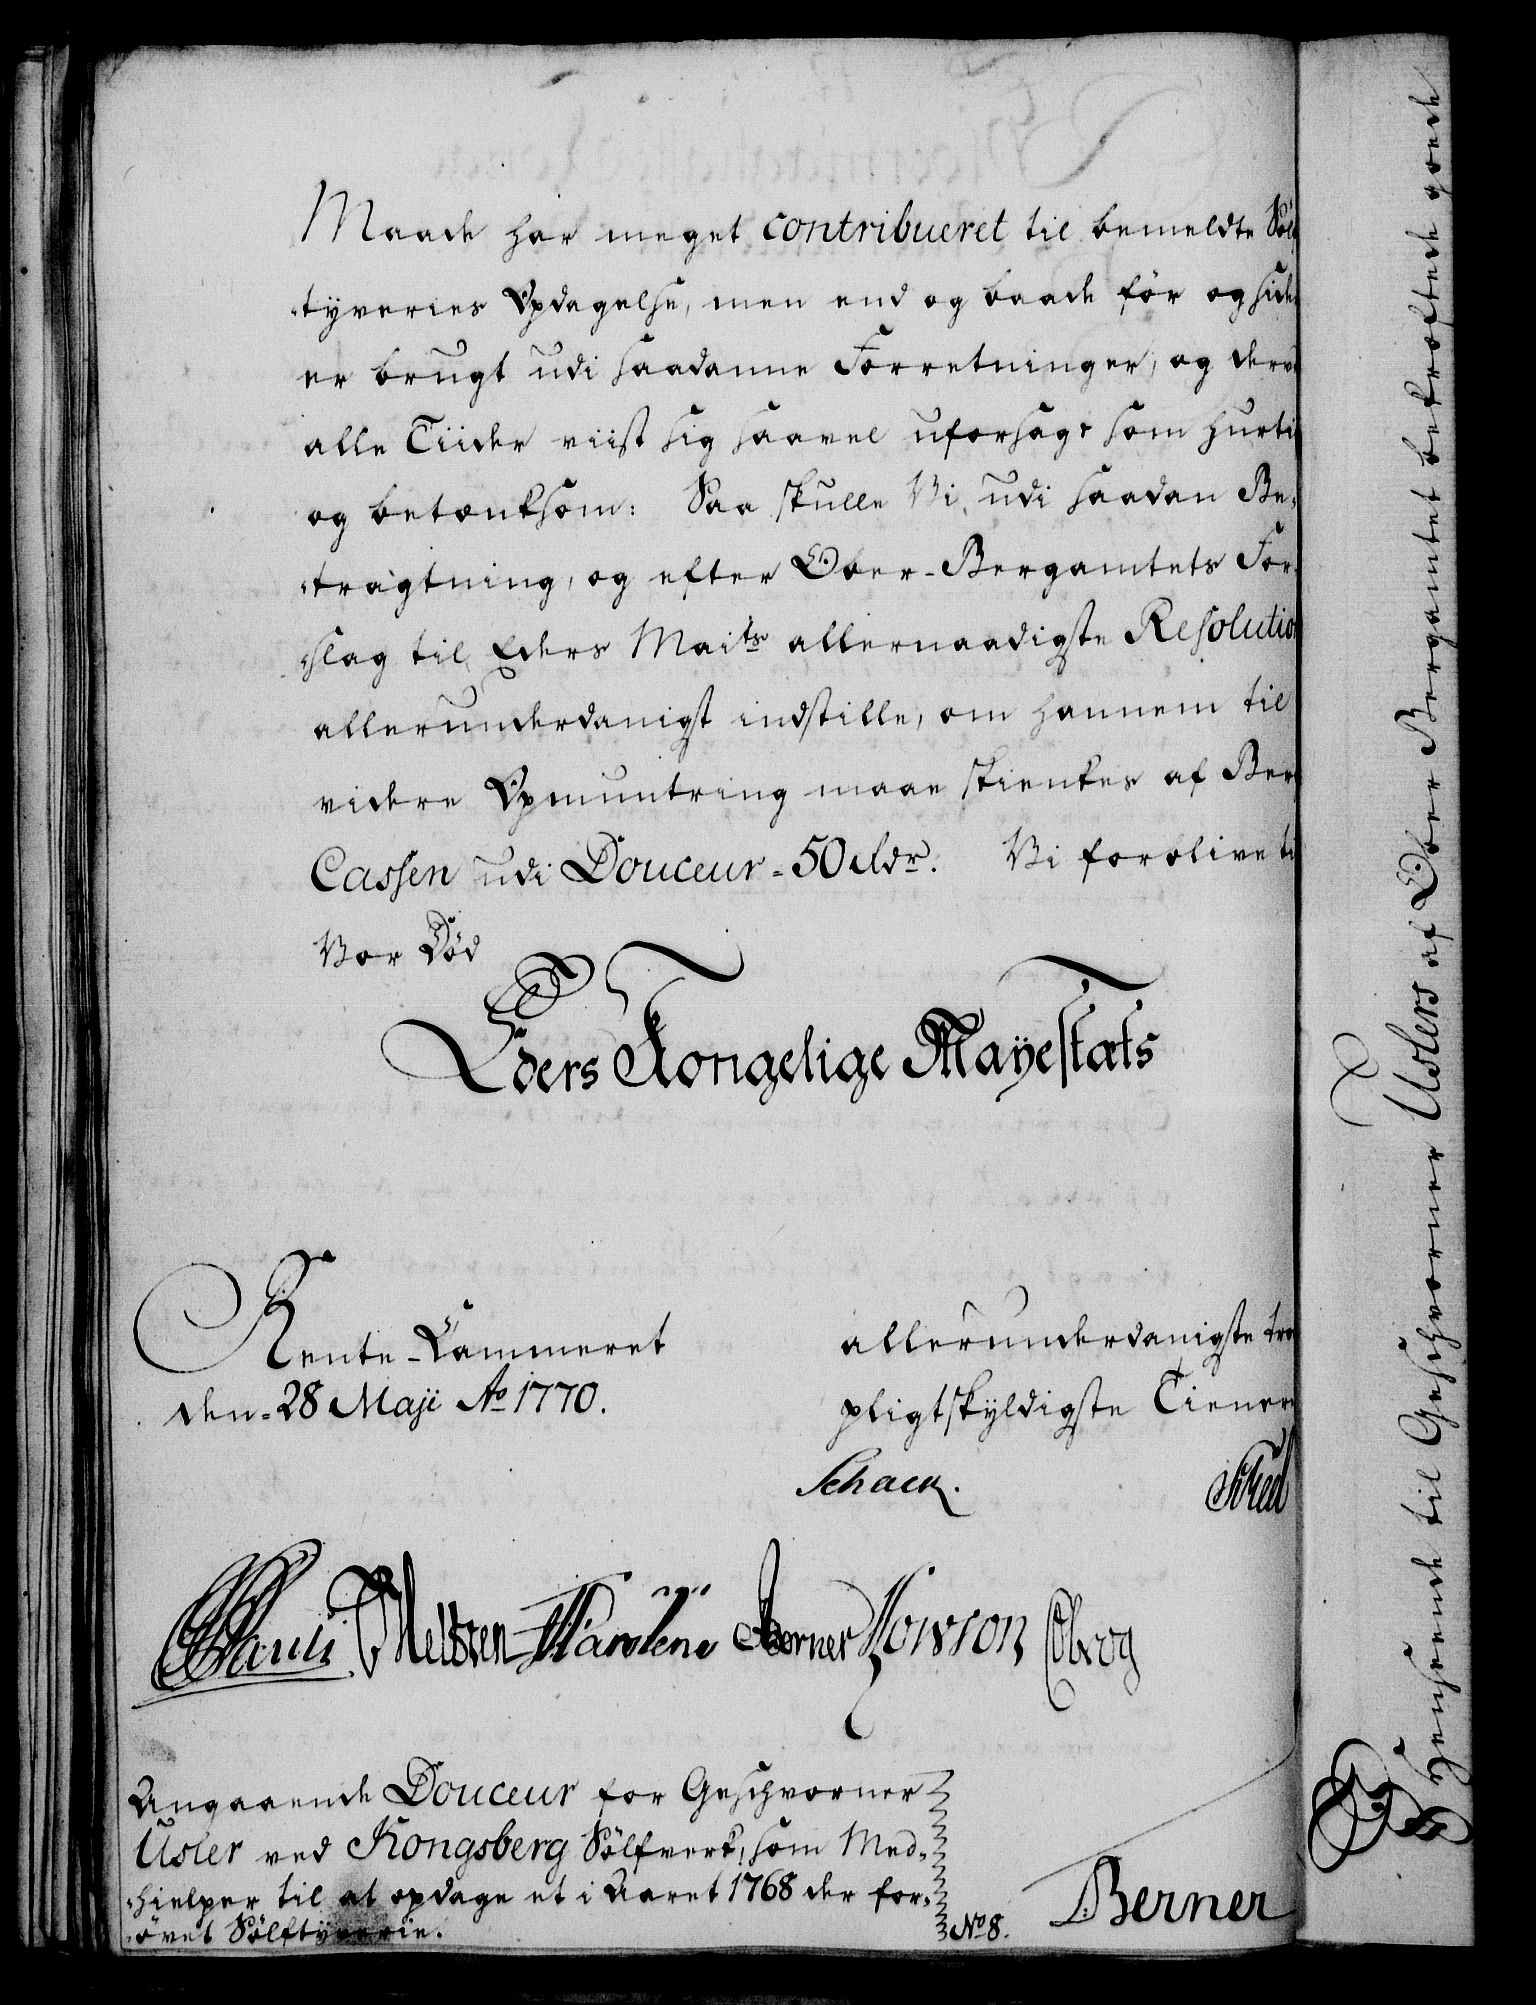 Maade har meget contribueret til bemeldte Sölf
tyveries Opdagelse, men end og baade för og siden
er brugt udi saadanne Forretninger, og derved
alle Tiider viist sig saavel uforsagt som hurtig
og betænksom: Saa skulle Vi, udi saadan Be-
tragtning, og efter Ober-Bergamtets For-
slag til Eders Maits allernaadigste Resolution
allerunderdanigst indstille, om hannem til
videre Opmuntring maae skienkes af Berg
Cassen udi Douceur - 50 Rdr. Vi forblive til
Vor Död
Eders Kongelige Mayestæts
Rente-Cammeret
den - 28 Maji Ao 1770.
allerunderdanigste troe
pligtskyldigste Tienere
Schack.
Berner
Angaaende Douceur for Geschvorner
Usler ved Kongsberg Sölfverk, som Med-
hielper til at opdage et i Aaret 1768 der for-
övet Sölftyverie.
No 8.
Berner
I Henseende til Geschvorner Uslers af Ober Bergamtet bekræftede goede